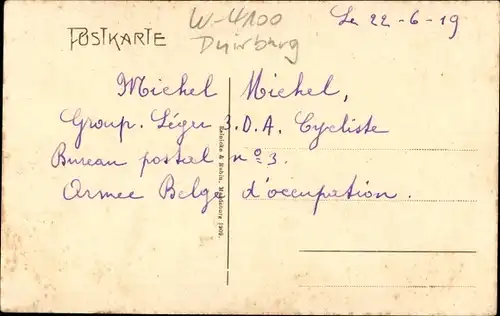 W-4100
Duisburg
Le 22-6-19
POSTKARTE
Michel Michel,
Group. Léger 3. D. A. Cycliste
Bureau postal nº 3.
Armee Belge d'occupation.
Reinicke & Rubin, Magdeburg 1909.